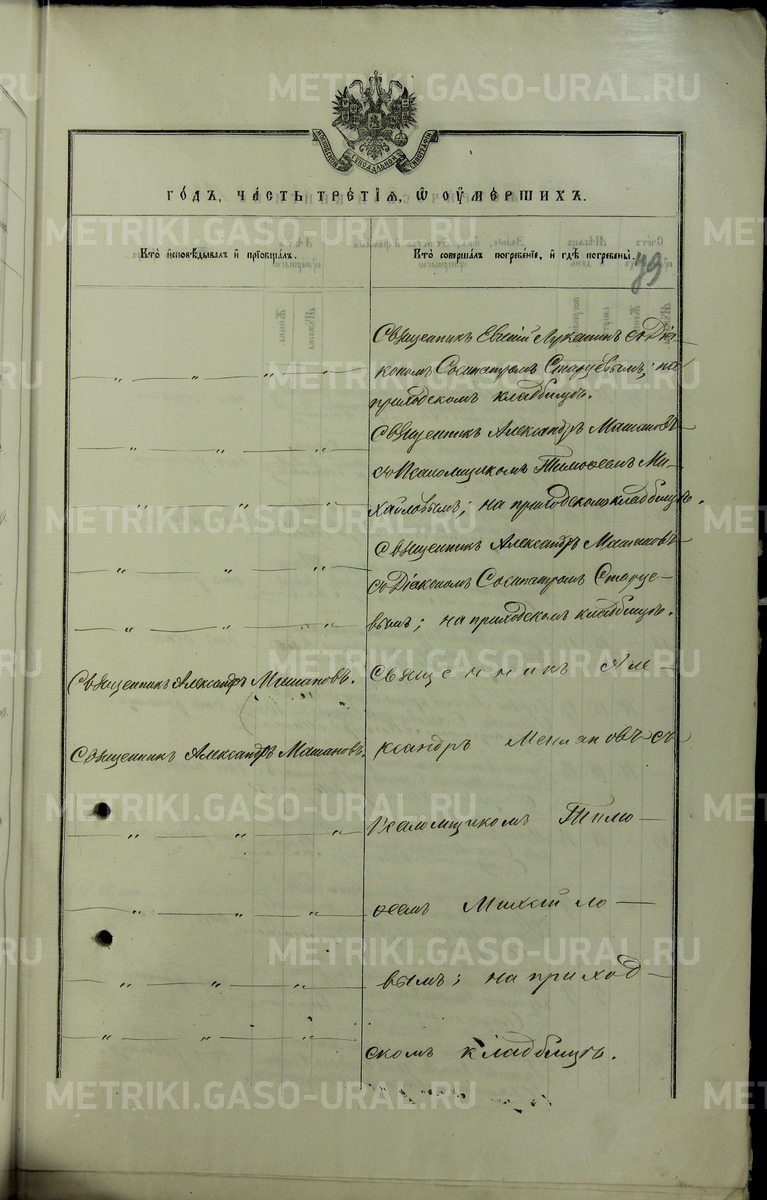 METRIKI.GASO-URAL.RU
ГО́ДЪ, ЧА́СТЬ ТРЕ́ТІѦ, Ѡ ОУМЕ́РШИХЪ.
Кто̀ и҆сповѣ́дывалъ и҆ прїѻбща́лъ.
Кто̀ соверша́лъ погребе́нїе, и҆ гдѣ̀ погребены̀.
79
Священникъ Евгеній Лукинъ съ Діа-
кономъ Сосипатромъ Старцевымъ; на
приходскомъ кладбищѣ.
Священникъ Александръ Машановъ
съ Псаломщикомъ Тимоѳеемъ Ми-
хайловымъ; на приходскомъ кладбищѣ.
Священникъ Александръ Машановъ
съ Діакономъ Сосипатромъ Старце-
вымъ; на приходскомъ кладбищѣ.
Священникъ Александръ Машановъ.
Священникъ Александръ Машановъ.
Священникъ Але-
ксандръ Машановъ съ
Псаломщикомъ Тимо-
ѳеемъ Михайло-
вымъ; на приход-
скомъ кладбищѣ.